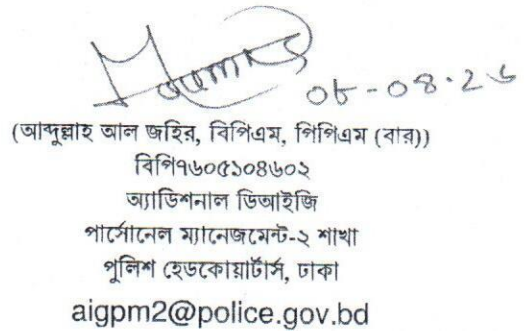 ০৮-০৪.২৬
(আব্দুল্লাহ আল জহির, বিপিএম, পিপিএম (বার))
বিপি৭৬০৫১০৮৬০২
অ্যাডিশনাল ডিআইজি
পার্সোনেল ম্যানেজমেন্ট-২ শাখা
পুলিশ হেডকোয়ার্টার্স, ঢাকা
aigpm2@police.gov.bd